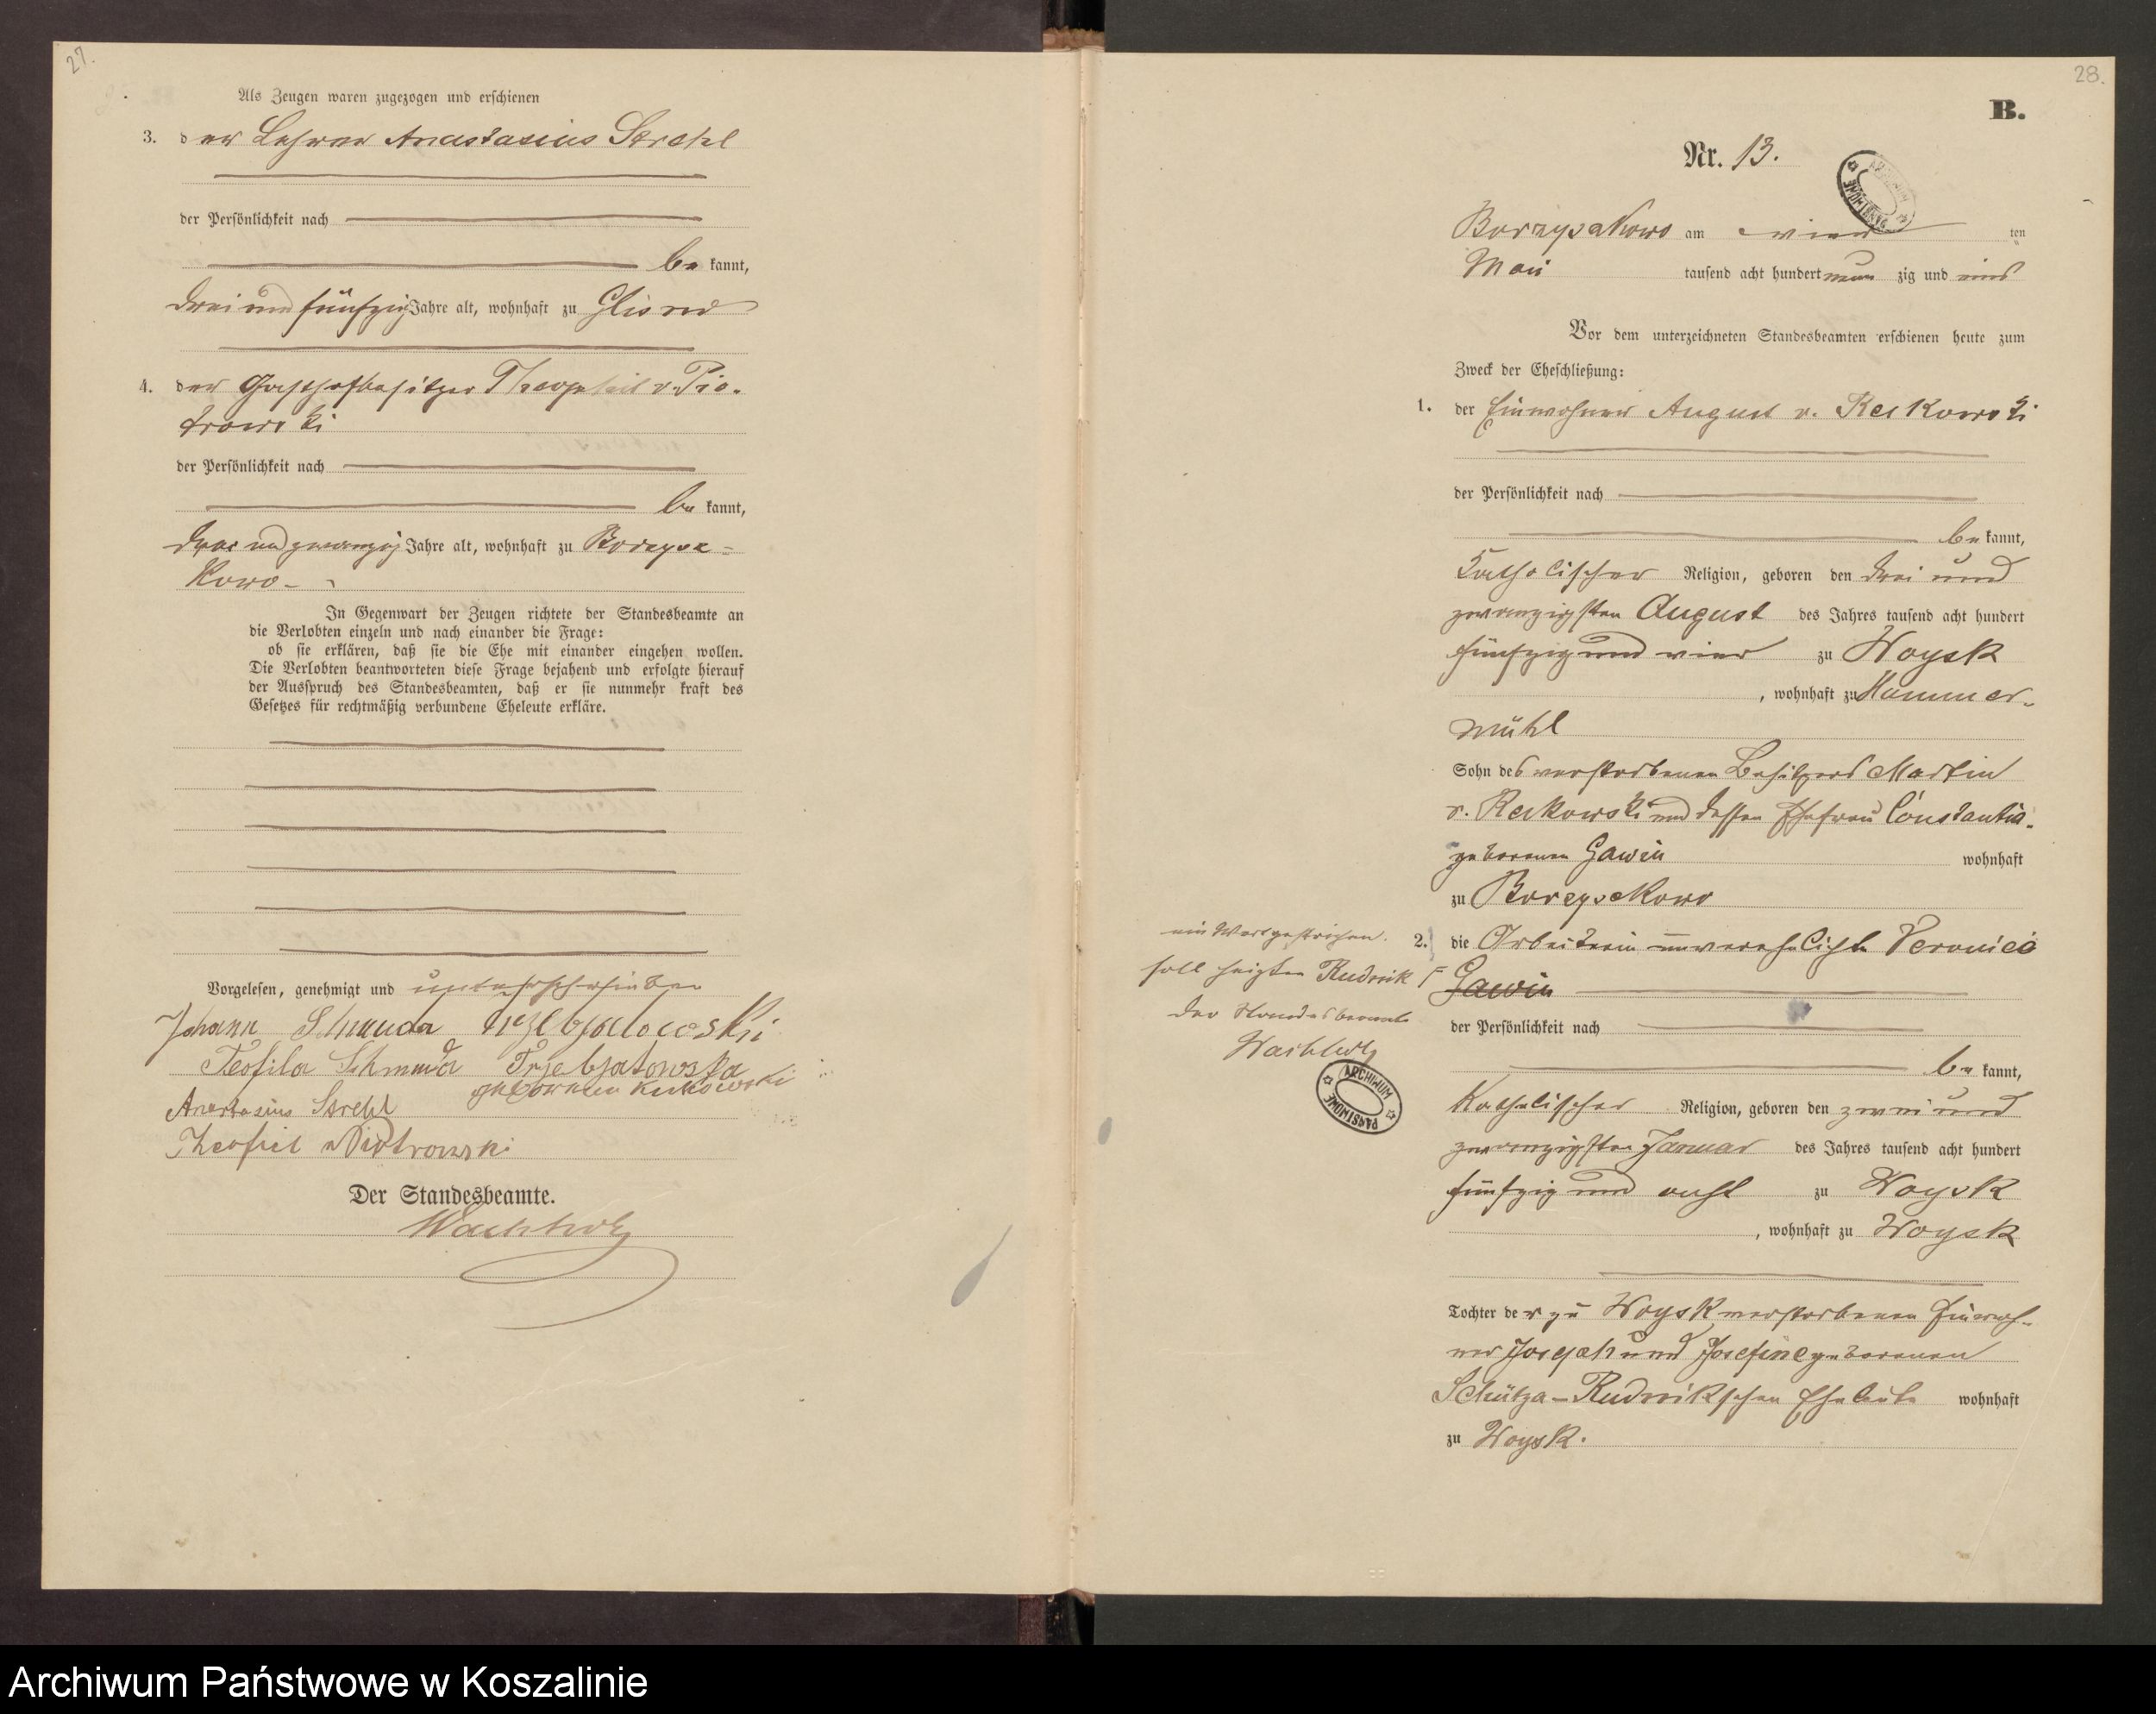 27.
Als Zeugen waren zugezogen und erschienen
3. der Lehrer Anastasius Strehl
der Persönlichkeit nach
be kannt,
drei und fünfzig Jahre alt, wohnhaft zu Glisno
4. der Gasthofbesitzer Theophil v. Pio-
trowski
der Persönlichkeit nach
be kannt,
und zwanzig Jahre alt, wohnhaft zu Borzysz-
kowo
In Gegenwart der Zeugen richtete der Standesbeamte an
die Verlobten einzeln und nach einander die Frage:
ob sie erklären, daß sie die Ehe mit einander eingehen wollen.
Die Verlobten beantworteten diese Frage bejahend und erfolgte hierauf
der Ausspruch des Standesbeamten, daß er sie nunmehr kraft des
Gesetzes für rechtmäßig verbundene Eheleute erkläre.
Vorgelesen, genehmigt und unterschrieben
Johann Schmuda Trzebjatowski
Teofila Schmuda Trzebjatowska
geborene Kukowski
Anastasius Strehl
Theofiel v Piotrowski
Der Standesbeamte.
Wachholz
28.
B.
Nr. 13.
Borzyszkowo am vier ten
Mai tausend acht hundert neun zig und eins
Vor dem unterzeichneten Standesbeamten erschienen heute zum
Zweck der Eheschließung:
1. der Einwohner August v. Rekowski
der Persönlichkeit nach
be kannt,
katholischer Religion, geboren den drei und
zwanzigsten August des Jahres tausend acht hundert
fünfzig und vier zu Woysk
, wohnhaft zu Hammer-
mühl
Sohn des verstorbenen Besitzers Martin
v. Rekowski und dessen Ehefrau Constantia
geborenen Gawin wohnhaft
zu Borzyszkowo
2. die Arbeiterin unverehelichte Veronica
Gawin
der Persönlichkeit nach
be kannt,
katholischer Religion, geboren den zwei und
zwanzigsten Januar des Jahres tausend acht hundert
fünfzig und acht zu Woysk
, wohnhaft zu Woysk
Tochter der zu Woysk verstorbenen Einwoh-
ner Joseph und Josefine geborenen
Schütza-Rudnikschen Eheleute wohnhaft
zu Woysk.
ein Wort gestrichen.
soll heißen Rudnik
Der Standesbeamte
Wachholz
ARCHIWUM PAŃSTWOWE
ARCHIWUM PAŃSTWOWE
Archiwum Państwowe w Koszalinie